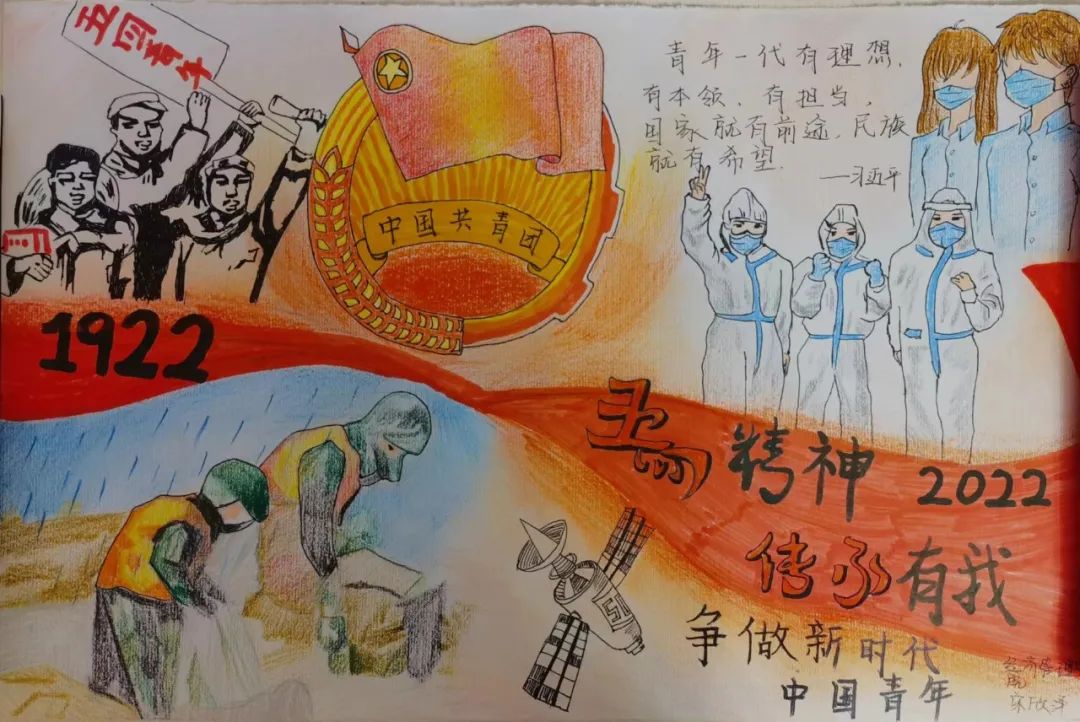 五四青年
中国共青团
青年一代有理想,
有本领、有担当,
国家就有前途,民族
就有希望.
——习近平
1922
五四精神 2022
传承有我
争做新时代
中国青年